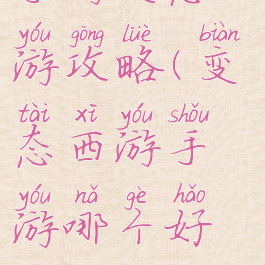 yóu gōng lüè biàn
游攻略(变
tài xī yóu shǒu
态西游手
yóu nǎ gè hǎo
游哪个好